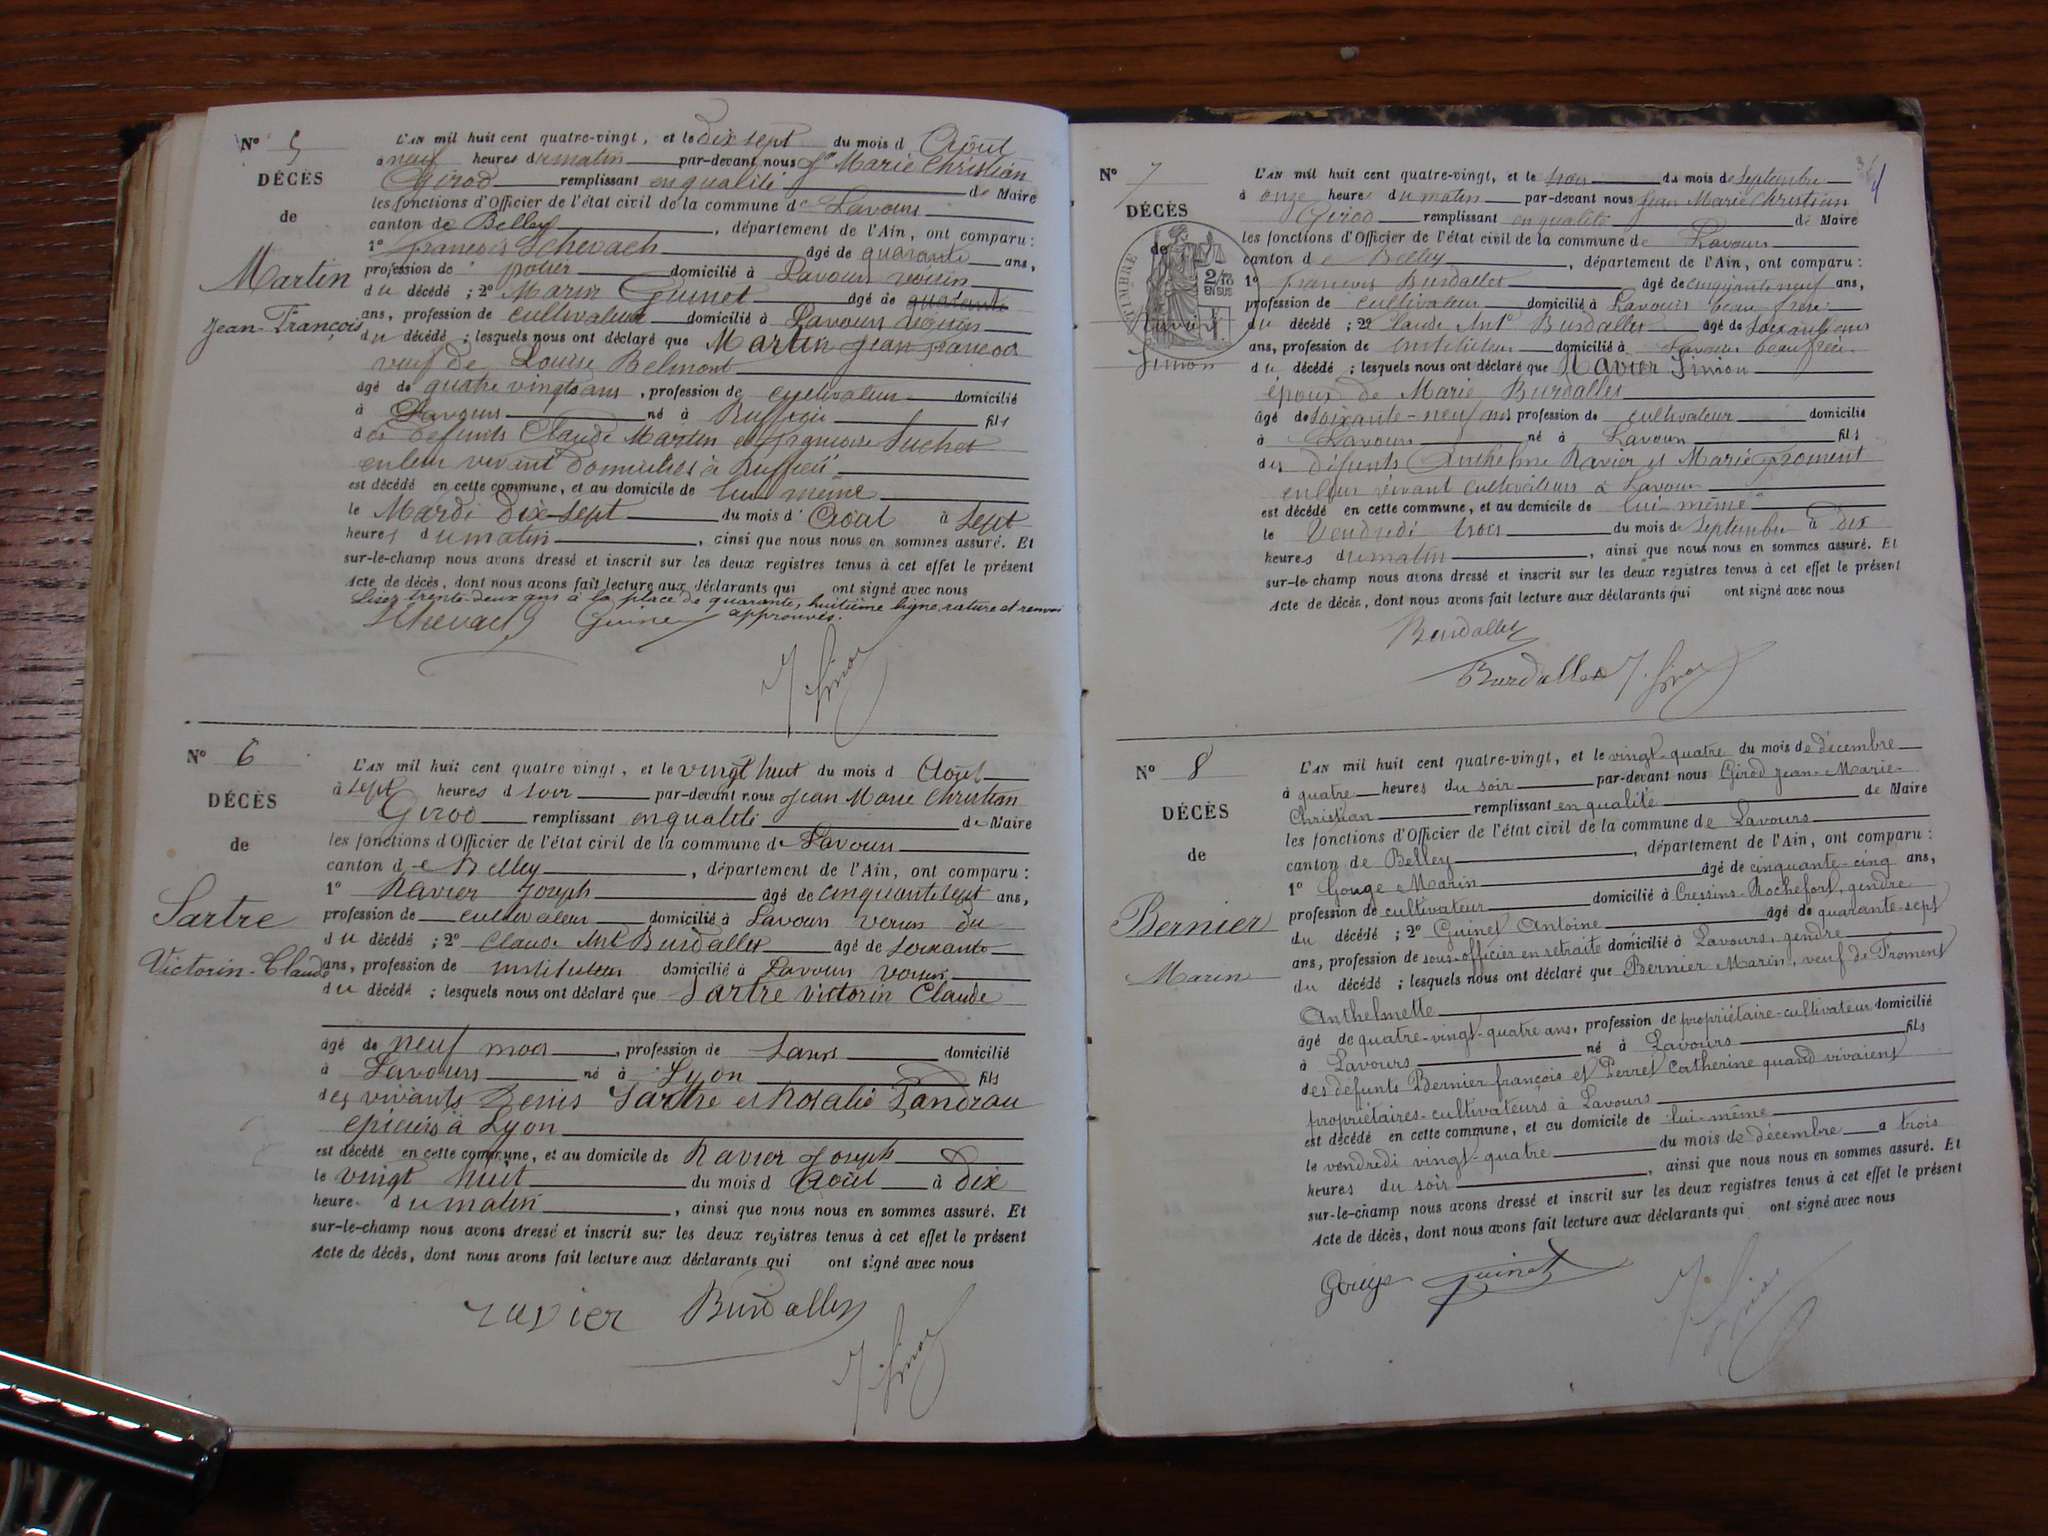 N° 5
DÉCÈS
de
Martin
Jean-François
L'AN mil huit cent quatre-vingt, et le dix sept du mois d Août
à neuf heures du matin par-devant nous Jn Marie Christian
Girod remplissant en qualité de Maire
les fonctions d'Officier de l'état civil de la commune de Lavours
canton de Belley, département de l'Ain, ont comparu :
1° françois Schevach âgé de quarante ans,
profession de potier domicilié à Lavours voisin
du décédé ; 2° Marin Guinet âgé de quarante
ans, profession de cultivateur domicilié à Lavours voisin
du décédé ; lesquels nous ont déclaré que Martin Jean françois
veuf de Louise Belmont
âgé de quatre vingts ans, profession de cultivateur domicilié
à Lavours né à Ruffieu fils
des défunts Claude Martin et françoise Suchet
en leur vivant domiciliés à Ruffieu
est décédé en cette commune, et au domicile de lui même
le Mardi Dix-sept du mois d' Août à sept
heures du matin, ainsi que nous nous en sommes assuré. Et
sur-le-champ nous avons dressé et inscrit sur les deux registres tenus à cet effet le présent
Acte de décès, dont nous avons fait lecture aux déclarants qui ont signé avec nous
Lisez trente-deux ans à la place de quarante, huitième ligne, rature et renvoi
approuvés.
Schevach Guinet
N° 6
DÉCÈS
de
Sartre
Victorin-Claude
L'AN mil huit cent quatre vingt, et le vingt huit du mois d Août
à sept heures d soir par-devant nous Jean Marie Christian
Girod remplissant en qualité de Maire
les fonctions d'Officier de l'état civil de la commune de Lavours
canton de Belley, département de l'Ain, ont comparu :
1° Ravier Joseph âgé de cinquante sept ans,
profession de cultivateur domicilié à Lavours voisin du
du décédé ; 2° Claude Ant Burdallet âgé de soixante
ans, profession de instituteur domicilié à Lavours voisin
du décédé ; lesquels nous ont déclaré que Sartre Victorin Claude
âgé de neuf mois, profession de sans domicilié
à Lavours né à Lyon fils
des vivants Denis Sartre et Rosalie Landrau
épiciers à Lyon
est décédé en cette commune, et au domicile de Ravier Joseph
le vingt huit du mois d Août à dix
heure du matin, ainsi que nous nous en sommes assuré. Et
sur-le-champ nous avons dressé et inscrit sur les deux registres tenus à cet effet le présent
Acte de décès, dont nous avons fait lecture aux déclarants qui ont signé avec nous
ravier Burdallet
N° 7
DÉCÈS
de
TIMBRE
2/10
EN SUS
Ravier
Simon
4
L'AN mil huit cent quatre-vingt, et le trois du mois de Septembre
à onze heure du matin par-devant nous Jean Marie Christian
Girod remplissant en qualité de Maire
les fonctions d'Officier de l'état civil de la commune de Lavours
canton de Belley, département de l'Ain, ont comparu :
1° françois Burdallet âgé de cinquante neuf ans,
profession de cultivateur domicilié à Lavours beau frère
du décédé ; 2° Claude Ant° Burdallet âgé de soixante
ans, profession de Instituteur domicilié à Lavours beau frère
du décédé ; lesquels nous ont déclaré que Ravier Simon
époux de Marie Burdallet
âgé de soixante-neuf ans profession de cultivateur domicilié
à Lavours né à Lavours fils
des défunts Anthelme Ravier et Marie froment
en leur vivant cultivateurs à Lavours
est décédé en cette commune, et au domicile de lui même
le Vendredi trois du mois de Septembre à Dix
heures du matin, ainsi que nous nous en sommes assuré. Et
sur-le-champ nous avons dressé et inscrit sur les deux registres tenus à cet effet le présent
Acte de décès, dont nous avons fait lecture aux déclarants qui ont signé avec nous
Burdallet
Burdallet
N° 8
DÉCÈS
de
Bernier
Marin
L'AN mil huit cent quatre-vingt, et le vingt-quatre du mois de décembre
à quatre heures du soir par-devant nous Girod Jean-Marie-
Christian remplissant en qualité de Maire
les fonctions d'Officier de l'état civil de la commune de Lavours
canton de Belley, département de l'Ain, ont comparu :
1° Gouge Marin âgé de cinquante-cinq ans,
profession de cultivateur domicilié à Cressins-Rochefort, gendre
du décédé ; 2° Guinet Antoine âgé de quarante-sept
ans, profession de sous-officier en retraite domicilié à Lavours, gendre
du décédé ; lesquels nous ont déclaré que Bernier Marin, veuf de Froment
Anthelmette
âgé de quatre-vingt-quatre ans, profession de propriétaire-cultivateur domicilié
à Lavours né à Lavours fils
des défunts Bernier françois et Perret Catherine quand vivaient
propriétaires-cultivateurs à Lavours
est décédé en cette commune, et au domicile de lui-même
le vendredi vingt-quatre du mois de décembre à trois
heures du soir, ainsi que nous nous en sommes assuré. Et
sur-le-champ nous avons dressé et inscrit sur les deux registres tenus à cet effet le présent
Acte de décès, dont nous avons fait lecture aux déclarants qui ont signé avec nous
Gouge Guinet